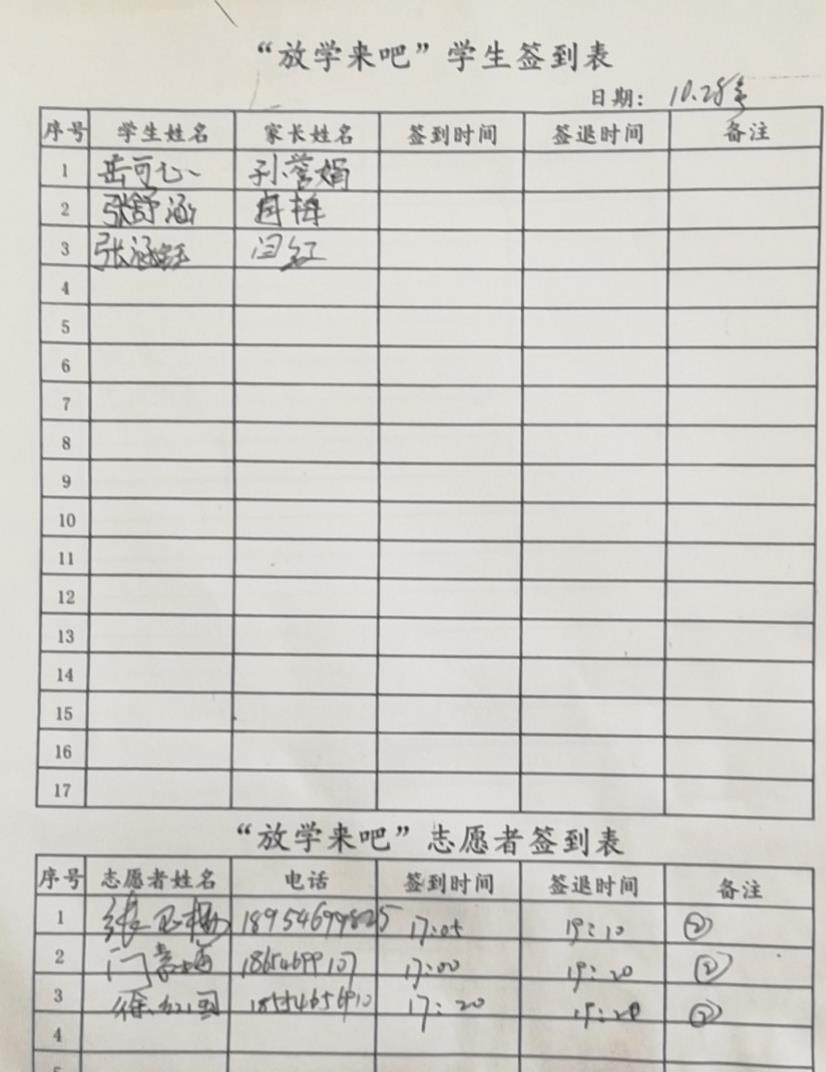 “放学来吧”学生签到表
日期: 10.28
序号 学生姓名 家长姓名 签到时间 签退时间 备注
1 岳可心 孙营娟
2 张舒涵
3 张涵钰 闫红
4
5
6
7
8
9
10
11
12
13
14
15
16
17
“放学来吧”志愿者签到表
序号 志愿者姓名 电话 签到时间 签退时间 备注
1 18954699825 17:05 19:10 ②
2 17:00 19:20 ②
3 17:20 19:20 ②
4